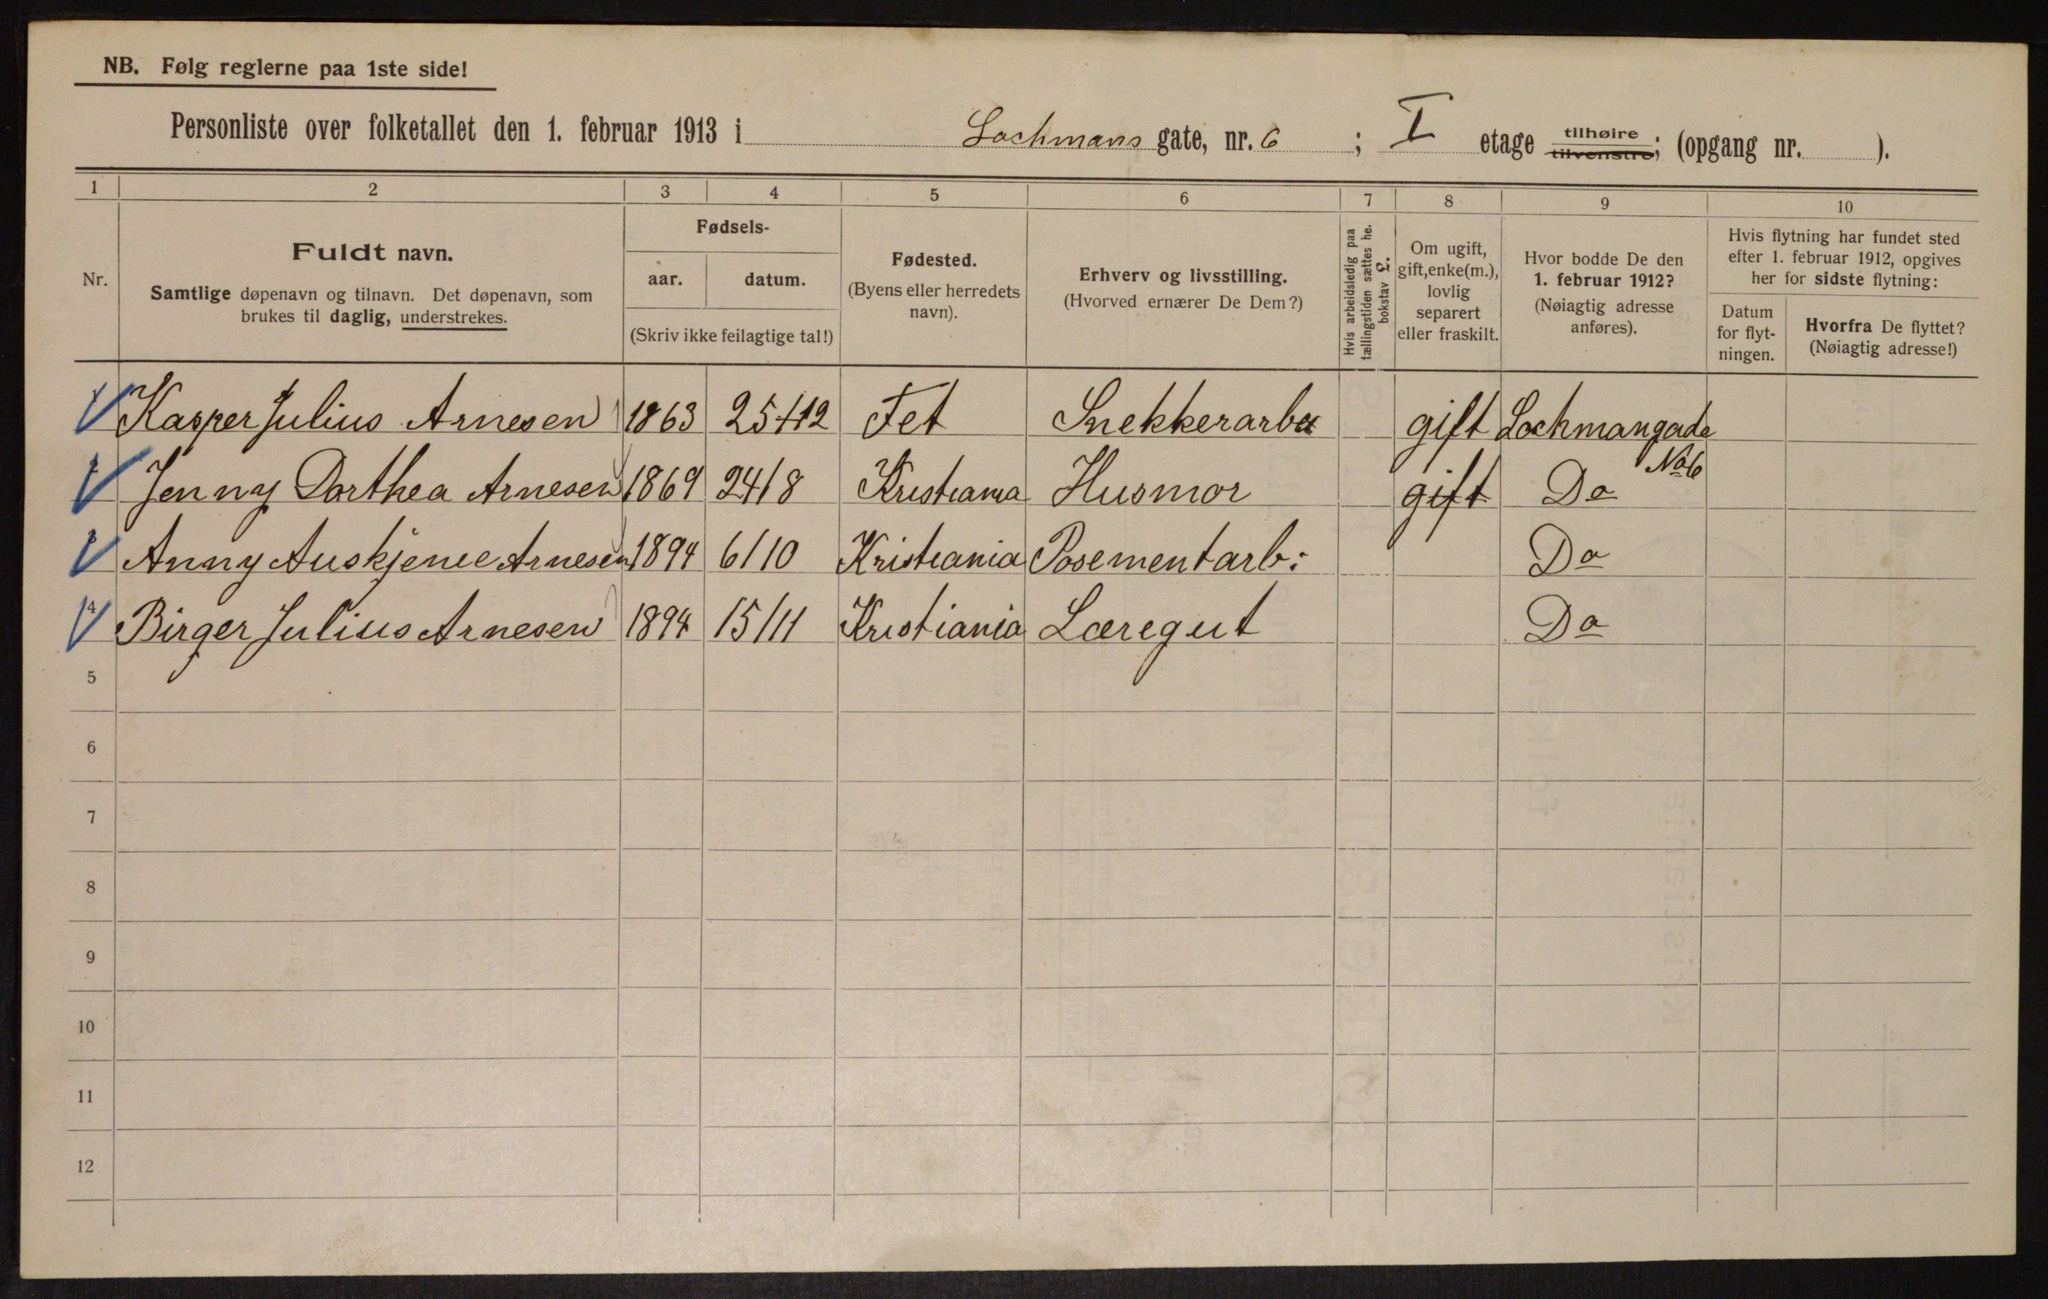 NB. Følg reglerne paa 1ste side!
Personliste over folketallet den 1. februar 1913 i Lochmans gate, nr. 6 ; I etage tilhøire tilvenstre; (opgang nr. ).
1 2 3 4 5 6 7 8 9 10
Nr.
Fuldt navn.
Samtlige døpenavn og tilnavn. Det døpenavn, som
brukes til daglig, understrekes.
Fødsels-
aar. datum.
(Skriv ikke feilagtige tal!)
Fødested.
(Byens eller herredets
navn).
Erhverv og livsstilling.
(Hvorved ernærer De Dem?)
Hvis arbeidsledig paa
tællingstiden sættes he.
bokstav £.
Om ugift,
gift, enke(m.),
lovlig
separert
eller fraskilt.
Hvor bodde De den
1. februar 1912?
(Nøiagtig adresse
anføres).
Hvis flytning har fundet sted
efter 1. februar 1912, opgives
her for sidste flytning:
Datum
for flyt-
ningen.
Hvorfra De flyttet?
(Nøiagtig adresse!)
1 Kasper Julius Arnesen 1863 25/12 Fet Snekkerarb gift Lochmangade
No 6
2 Jenny Dorthea Arnesen 1869 24/8 Kristiania Husmor gift Do
3 Anny Arnesen 1894 6/10 Kristiania Posementarb: Do
4 Birger Julius Arnesen 1894 15/11 Kristiania Læregut Do
5
6
7
8
9
10
11
12